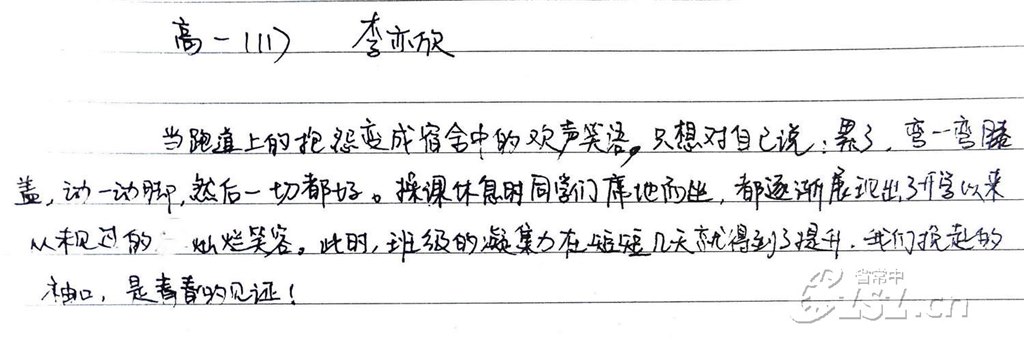 高一(11) 李亦欣
当跑道上的抱怨变成宿舍中的欢声笑语，只想对自己说：累了，弯一弯膝
盖，动一动脚，然后一切都好。操课休息时同学们席地而坐，都逐渐展现出了开学以来
从未见过的 灿烂笑容。此时，班级的凝集力在短短几天就得到了提升，我们挽起的
袖口，是青春的见证！
省常中
CSZ.cn